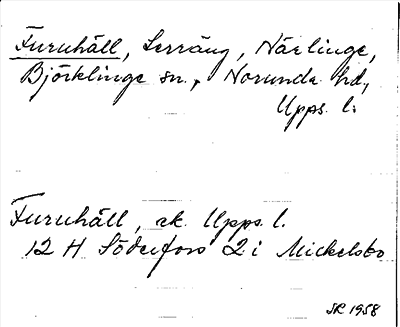 Furuhäll, Lerräng, Närlinge,
Björklinge sn., Norunda hd,
Upps. l.
Furuhäll, ek. Upps. l.
12 H Söderfors 2 i Mickelsbo
SR 1958